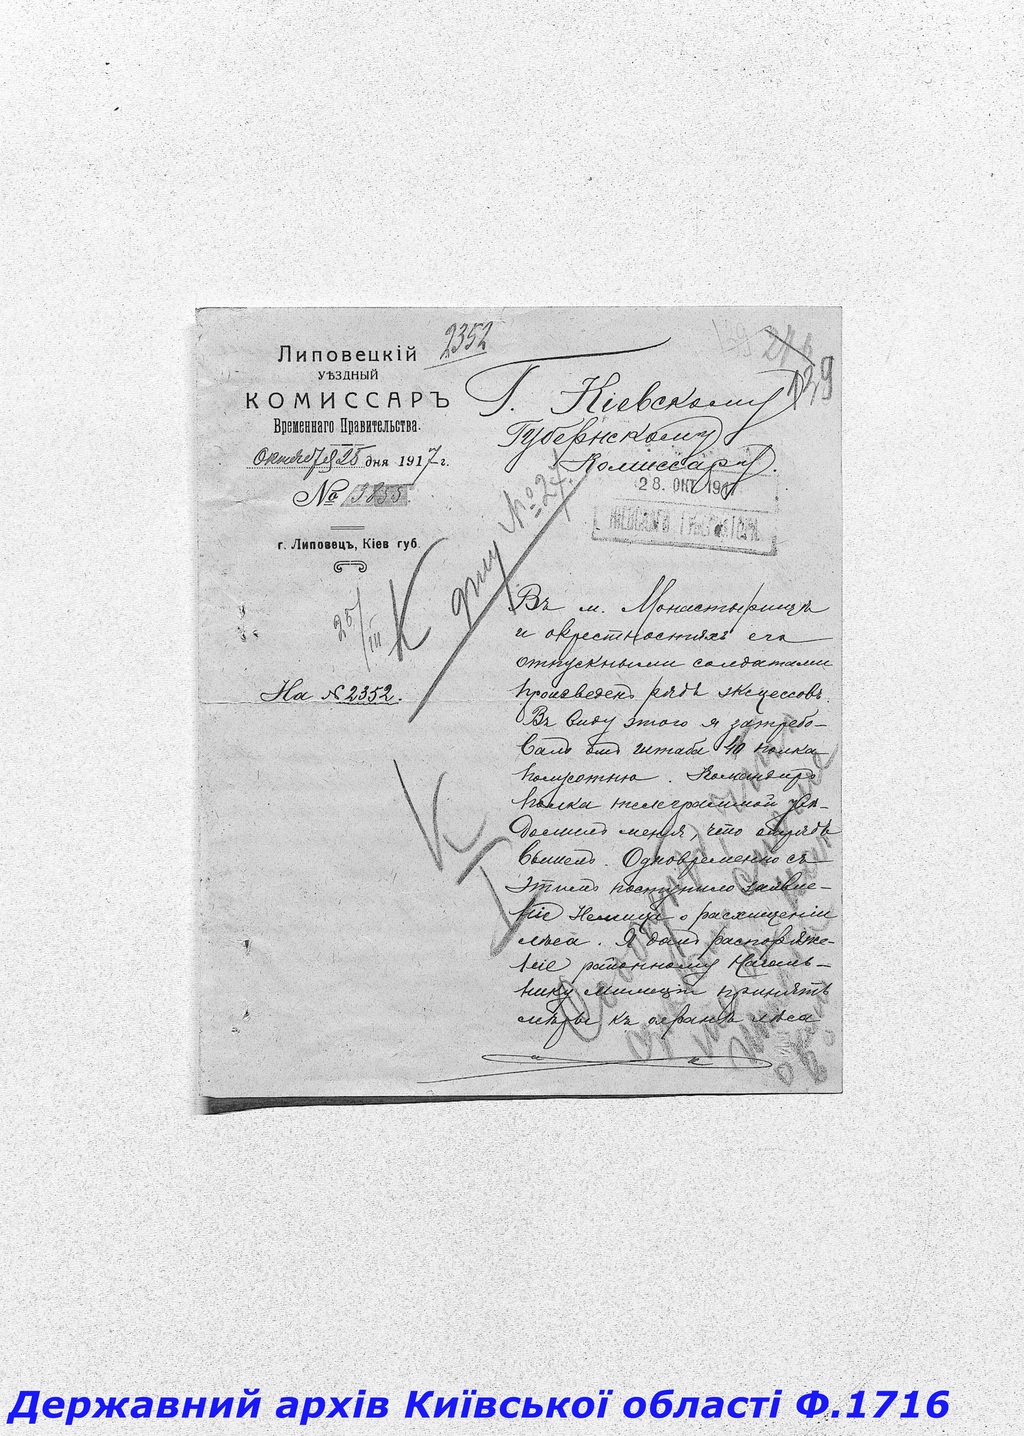 2352
Липовецкій
УѢЗДНЫЙ
КОМИССАРЪ
Временнаго Правительства.
Октября 25 дня 1917 г.
№ 3855
г. Липовецъ, Кіев губ.
На № 2352.
139
Г. Кіевскому
Губернскому
Комиссару.
28. ОКТ 1917
К делу № 27.
25/III
Въ м. Монастырищѣ
и окрестностяхъ его
отпускными солдатами
произведенъ рядъ эксцессовъ.
Въ виду этого я затребо-
валъ отъ штаба 40 полка
полусотню. Командиръ
полка телеграммой уве-
домилъ меня, что отрядъ
вышелъ. Одновременно съ
этимъ поступило заявле-
ніе о расхищеніи
лѣса. Я далъ распоряже-
ніе районному Началь-
нику Милиціи принять
мѣры къ охранѣ лѣса
Державний архів Київської області Ф.1716